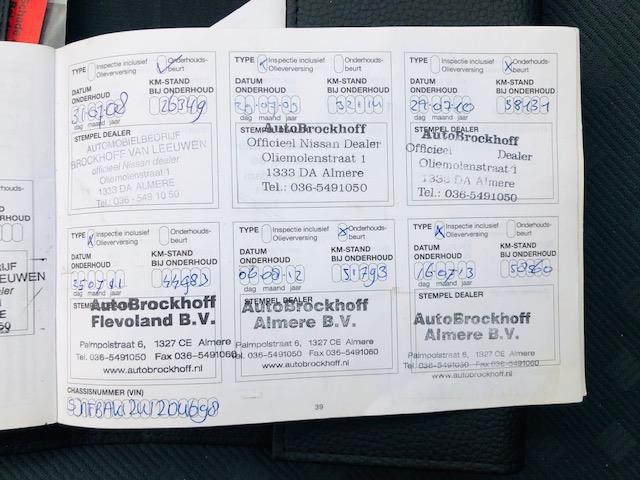 TYPE Inspectie inclusief Olieverversing Onderhouds-beurt
DATUM ONDERHOUD KM-STAND BIJ ONDERHOUD
31-07-08 26349
dag maand jaar
STEMPEL DEALER
AUTOMOBIELBEDRIJF
BROCKHOFF VAN LEEUWEN
officieel Nissan dealer
Oliemolenstraat 1
1333 DA Almere
Tel. 036 - 549 10 50
TYPE Inspectie inclusief Olieverversing Onderhouds-beurt
DATUM ONDERHOUD KM-STAND BIJ ONDERHOUD
dag maand jaar
STEMPEL DEALER
AutoBrockhoff
Officieel Nissan Dealer
Oliemolenstraat 1
1333 DA Almere
Tel.: 036-5491050
TYPE Inspectie inclusief Olieverversing Onderhouds-beurt
DATUM ONDERHOUD KM-STAND BIJ ONDERHOUD
29-07-10
dag maand jaar
STEMPEL DEALER
AutoBrockhoff
Officieel Dealer
Oliemolenstraat 1
1333 DA Almere
Tel.: 036-5491050
TYPE Inspectie inclusief Olieverversing Onderhouds-beurt
DATUM ONDERHOUD KM-STAND BIJ ONDERHOUD
25-07-11 44983
dag maand jaar
STEMPEL DEALER
AutoBrockhoff
Flevoland B.V.
Palmpolstraat 6, 1327 CE Almere
Tel. 036-5491050 Fax 036-5491060
www.autobrockhoff.nl
TYPE Inspectie inclusief Olieverversing Onderhouds-beurt
DATUM ONDERHOUD KM-STAND BIJ ONDERHOUD
06-08-12 51793
dag maand jaar
STEMPEL DEALER
AutoBrockhoff
Almere B.V.
Palmpolstraat 6, 1327 CE Almere
Tel. 036-5491050 Fax 036-5491060
www.autobrockhoff.nl
TYPE Inspectie inclusief Olieverversing Onderhouds-beurt
DATUM ONDERHOUD KM-STAND BIJ ONDERHOUD
16-07-13 58560
dag maand jaar
STEMPEL DEALER
AutoBrockhoff
Almere B.V.
Palmpolstraat 6, 1327 CE Almere
Tel. 036-5491050 Fax 036-5491060
www.autobrockhoff.nl
CHASSISNUMMER (VIN)
39